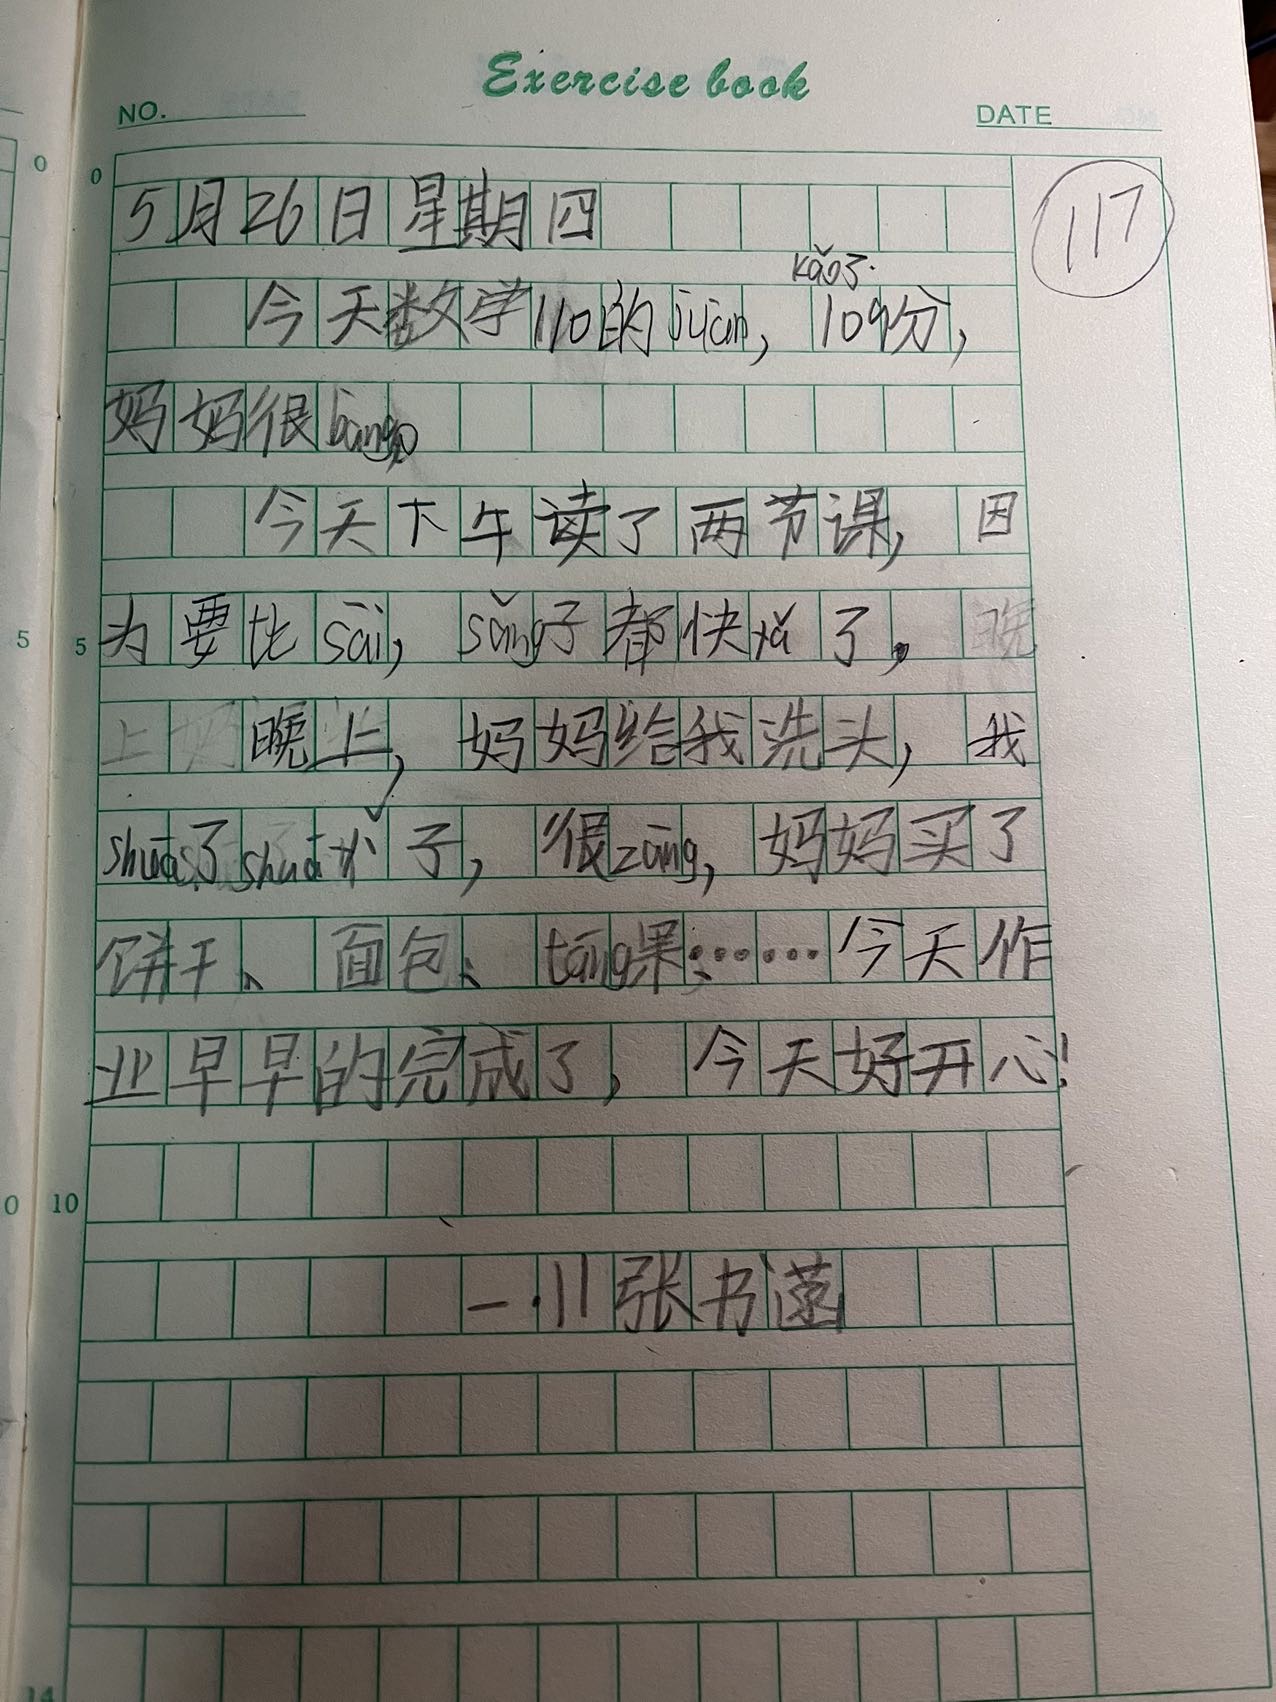 Exercise book
NO.
DATE
0
0
117
5月26日星期四
kǎo了.
今天数学110的juàn, 109分,
妈妈很bàng。
今天下午读了两节课, 因
5
5
为要比sài, sǎng子都快yǎ了。晚
上妈晚上, 妈妈给我洗头, 我
子, 很zāng, 妈妈买了
饼干、面包、táng果……今天作
业早早的完成了, 今天好开心!
0
10
一.11张书菡
14